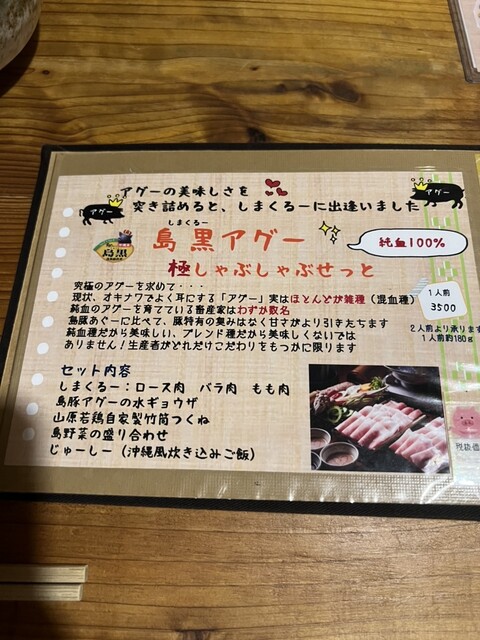 アグーの美味しさを
突き詰めると、しまくるーに出逢いました
アグー
アグー
しまくるー
島黒
島黒アグー
純血100%
極しゃぶしゃぶせっと
究極のアグーを求めて・・・
現状、オキナワでよく耳にする「アグー」実はほとんどが雑種(混血種)
純血のアグーを育てている畜産家はわずか数名
島豚あぐーに比べて、豚特有の臭みはなく甘さがより引きたちます
純血種だから美味しい、ブレンド種だから美味しくないでは
ありません！生産者がどれだけこだわりをもつかに限ります
1人前
3500
2人前より承ります
1人前約180g
セット内容
しまくるー：ロース肉　バラ肉　もも肉
島豚アグーの水ギョウザ
山原若鶏自家製竹筒つくね
島野菜の盛り合わせ
じゅーしー（沖縄風炊き込みご飯）
税抜価